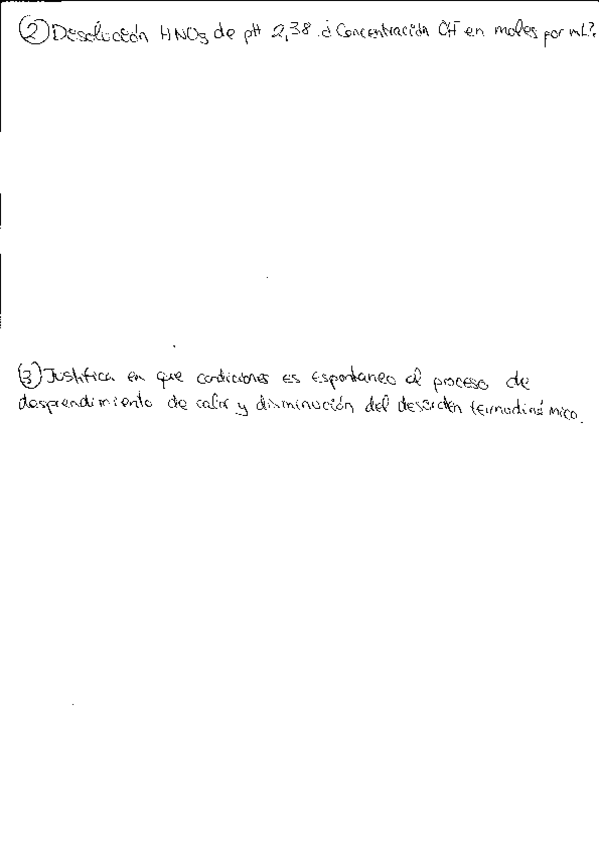 ② Disolución HNO3 de pH 2,38. ¿Concentración OH⁻ en moles por mL?.
③ Justifica en que condiciones es espontaneo el proceso de
desprendimiento de calor y disminución del desorden termodinámico.